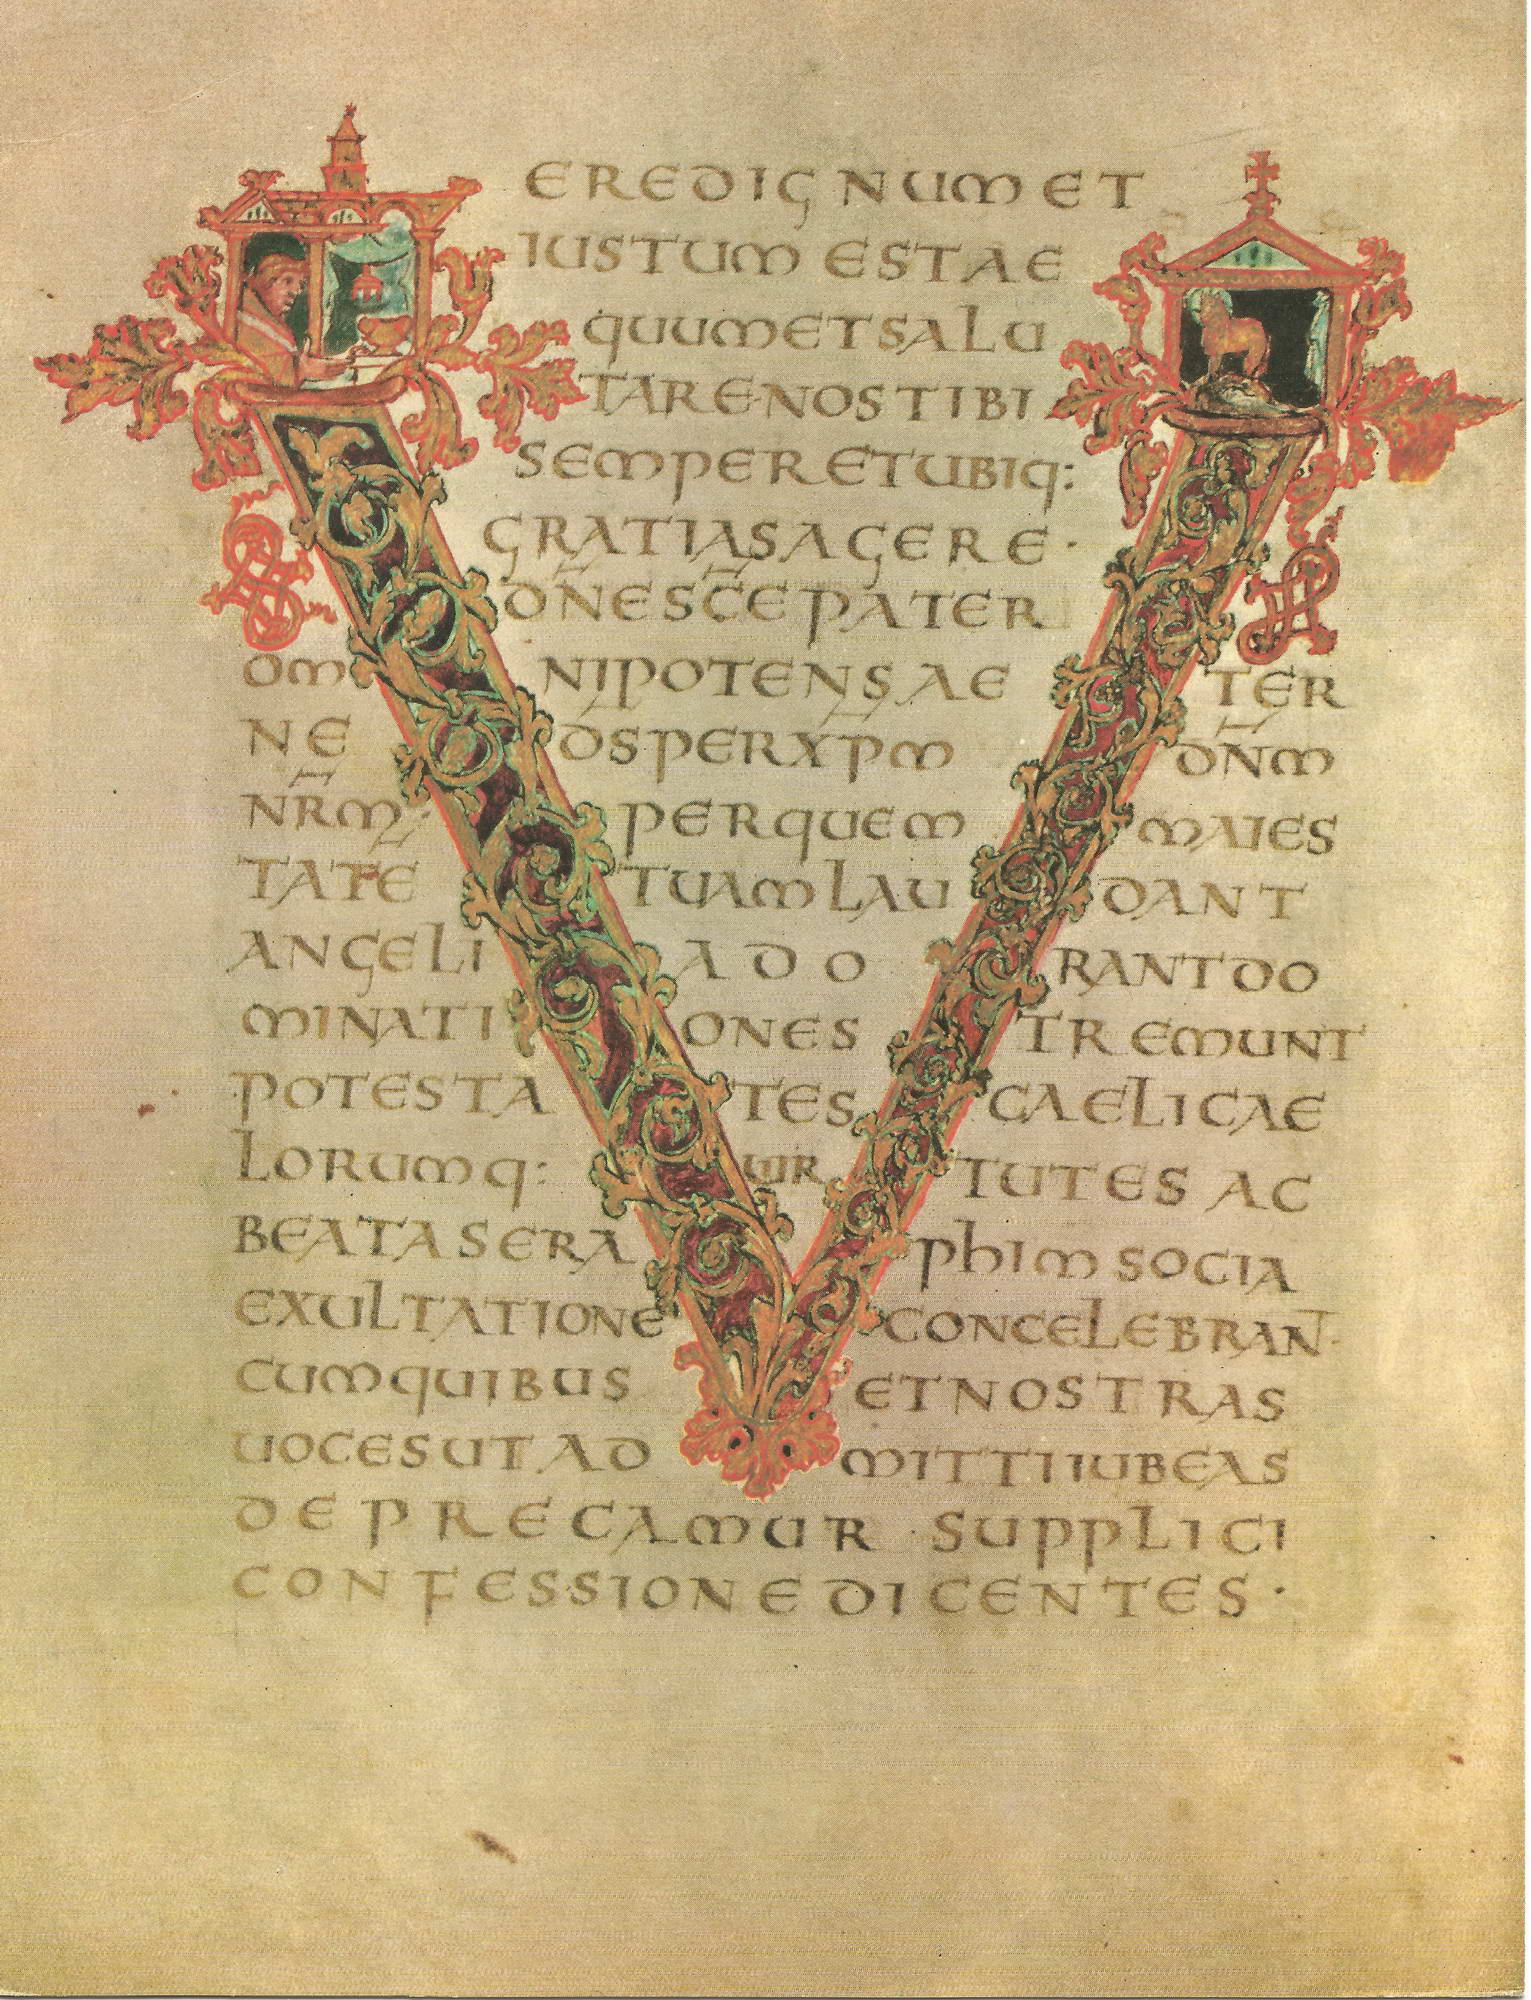 V EREDIGNUMET
IUSTUM ESTAE
QUUMETSALU
TARE NOSTIBI
SEMPERETUBIQ:
GRATIASAGERE·
DN̄ESC̄EPATER
OMNIPOTENSAETER
NE D̄SPERXP̄M DN̄M
NR̄M· PERQUEM MAIES
TATĒ TUAMLAUDANT
ANGELI ADORANTDO
MINATIONES TREMUNT
POTESTATES CAELICAE
LORUMQ: UIRTUTES AC
BEATASERAPHIMSOCIA
EXULTATIONE CONCELEBRANT·
CUMQUIBUS ETNOSTRAS
UOCESUTADMITTIIUBEAS
DEPRECAMUR SUPPLICI
CONFESSIONEDICENTES·